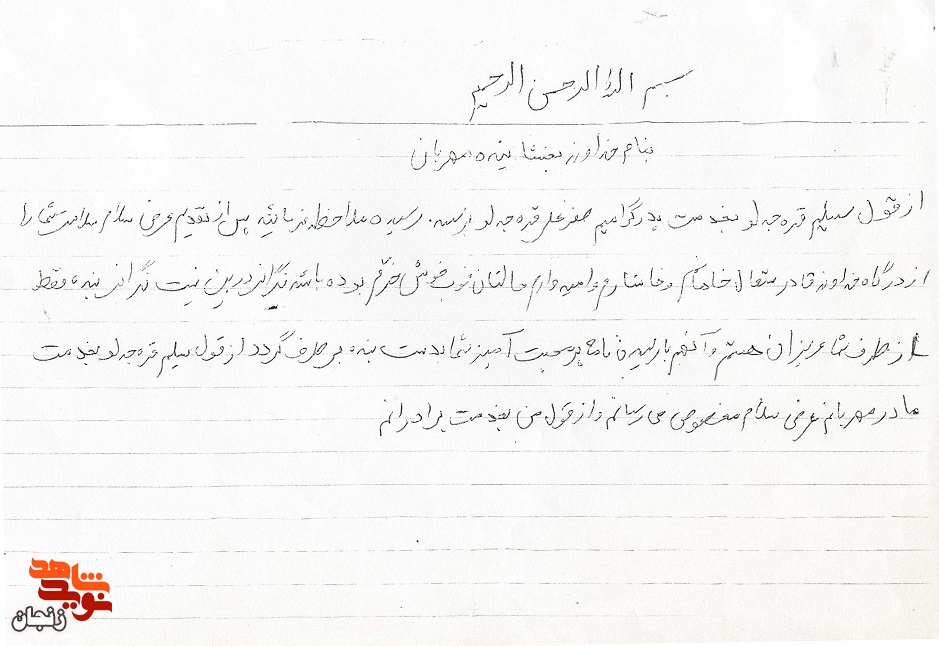 بسم الله الرحمن الرحیم
بنام خداوند بخشاینده مهربان
از قول سلیم قره جه لو بخدمت پدر گرامیم صفر علی قره جه لو برسد. رسیده ملاحظه فرمائید پس از تقدیم عرض سلام سلامت شما را
از درگاه خداوند قادر متعال خاهانم و خاستارم و امیدوارم حالتان خوب خوش خرّم بوده باشد نگرانی در بین نیست نگرانی بنده فقط
از طرف شما عزیزان هستم و آنهم با رسیدن نامه پر محبت آمیز شما بدست بنده بر طرف گردد از قول سلیم قره جه لو بخدمت
مادر مهربانم عرض سلام مخصوص می رسانم و از قول من بخدمت برادرانم
نوید شاهد
زنجان